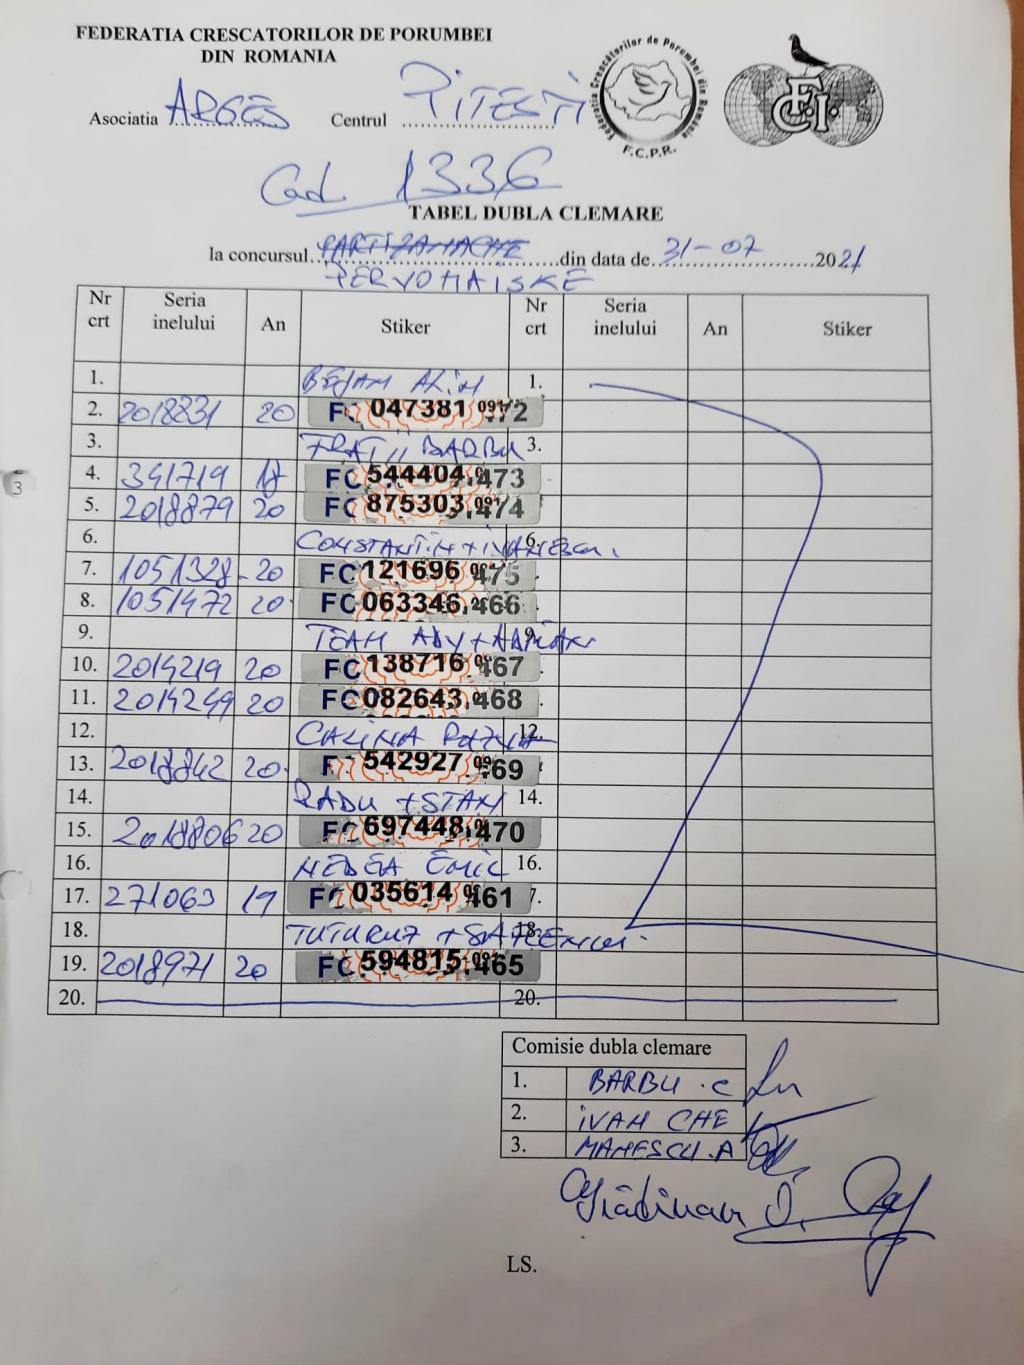 FEDERATIA CRESCATORILOR DE PORUMBEI
DIN ROMANIA
Asociatia ARGES Centrul PITESTI
Federatia Crescătorilor de Porumbei din Romania
F.C.P.R.
FCI
Cod. 1336
TABEL DUBLA CLEMARE
la concursul din data de 31-07 2021
PERVOMAISKE
Nr crt Seria inelului An Stiker Nr crt Seria inelului An Stiker
1. BEJAN ALIN 1.
2. 2018831 20 FC 047381 0972
3. FRATII BARBU 3.
4. 341719 18 FC 544404 473
5. 2018879 20 FC 875303 474
6. CONSTANTIN + IVANESCU 6.
7. 1051328 - 20 FC 121696 475
8. 1051472 20 FC 063346 466
9. TEAM ADY + ADRIAN 9.
10. 2014219 20 FC 138716 467
11. 2014249 20 FC 082643 468
12. CALINA 12.
13. 2018842 20 F 542927 469
14. RADU + STAN 14.
15. 2018806 20 FC 697448 470
16. NEDEA EMIL 16.
17. 271063 19 FC 035614 461 7.
18. 18.
19. 2018971 20 FC 594815 465
20. 20.
Comisie dubla clemare
1. BARBU .C
2. IVAN CHE
3. MANESCU.A
LS.
3